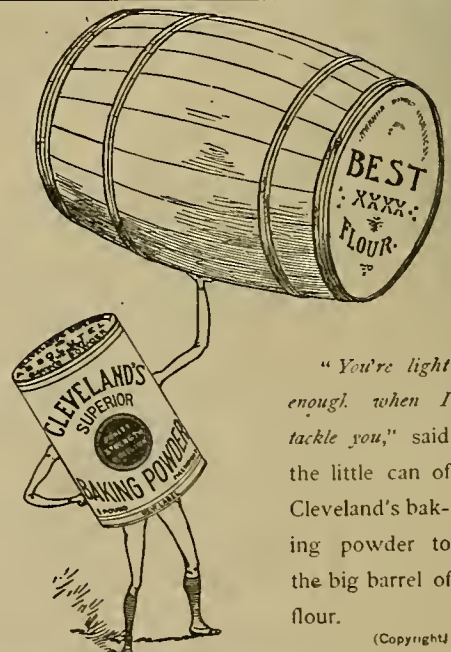 BEST
XXXX
FLOUR.
CLEVELAND'S
SUPERIOR
BAKING POWDER
1 POUND
" You're light
enough when I
tackle you," said
the little can of
Cleveland's bak-
ing powder to
the big barrel of
flour.
(Copyright)